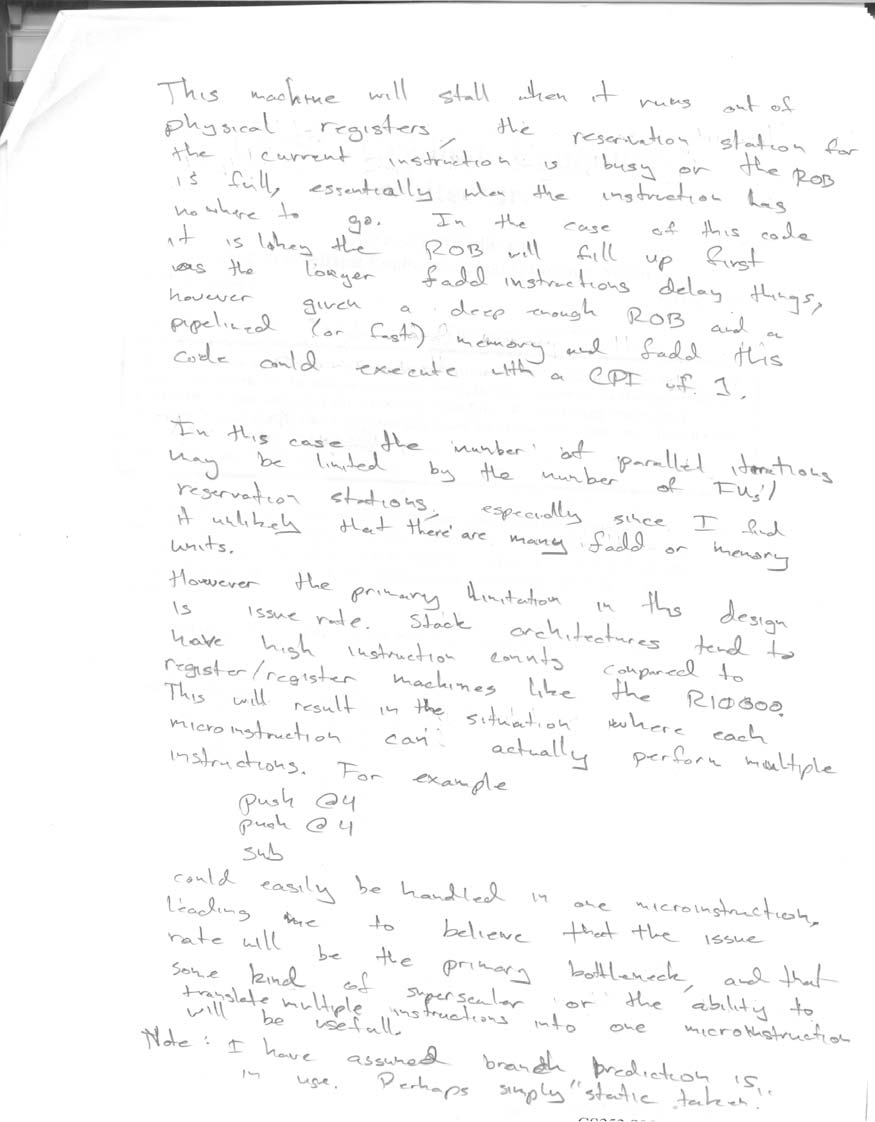 This machine will stall when it runs out of
physical registers, the reservation station for
the current instruction is busy or the ROB
is full, essentially when the instruction has
nowhere to go. In the case of this code
it is likey the ROB will fill up first
as the longer fadd instructions delay things,
however given a deep enough ROB and a
pipelined (or fast) memory and fadd this
code could execute with a CPI of 1.
In this case the number of parallel iterations
may be limited by the number of FUs/
reservation stations, especially since I find
it unlikely that there are many fadd or memory
units.
However the primary limitation in this design
is issue rate. Stack architectures tend to
have high instruction counts compared to
register/register machines like the R10000.
This will result in the situation where each
microinstruction can actually perform multiple
instructions. For example
push @4
push @4
sub
could easily be handled in one microinstruction,
leading me to believe that the issue
rate will be the primary bottleneck, and that
some kind of superscalar or the ability to
translate multiple instructions into one microinstruction
will be usefull.
Note: I have assumed branch prediction is
in use. Perhaps simply "static taken."